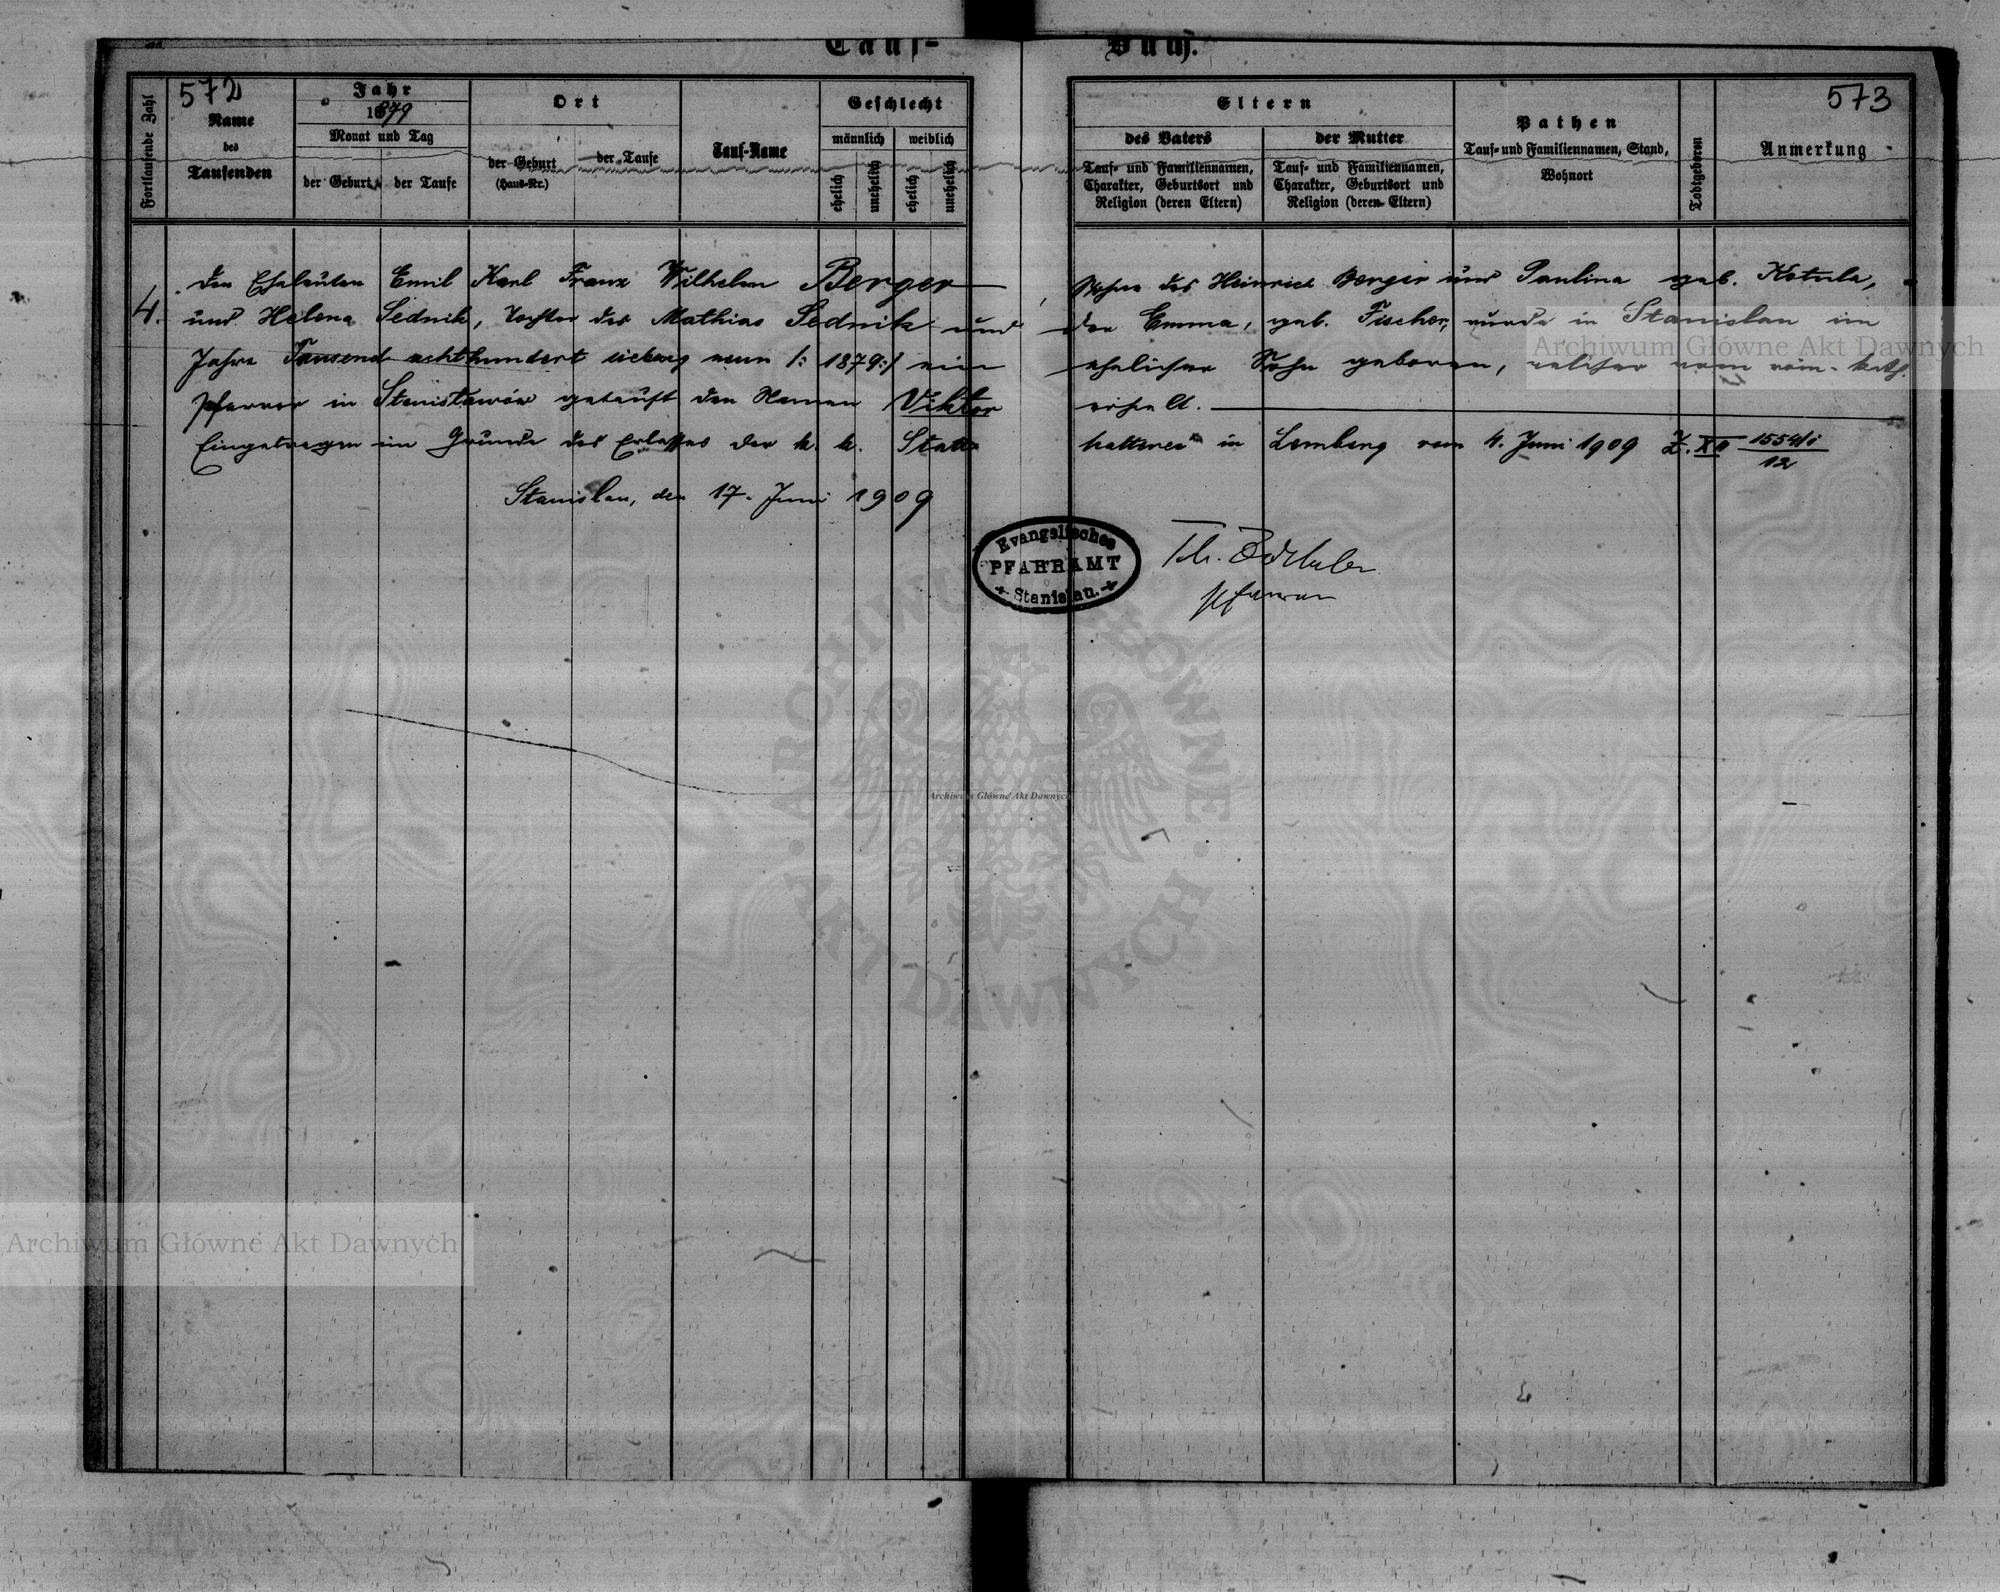 Tauf-
Buch.
572
573
Fortlaufende Zahl
Name
des
Taufenden
Jahr
1879
Monat und Tag
der Geburt
der Taufe
Ort
der Geburt
(Haus-Nr.)
der Taufe
Tauf-Name
Geschlecht
männlich
weiblich
ehelich
unehelich
ehelich
unehelich
Eltern
des Vaters
Tauf- und Familiennamen,
Charakter, Geburtsort und
Religion (deren Eltern)
der Mutter
Tauf- und Familiennamen,
Charakter, Geburtsort und
Religion (deren Eltern)
Pathen
Tauf- und Familiennamen, Stand,
Wohnort
Todtgeboren
Anmerkung
4.
Den Eheleuten Emil Karl Franz Wilhelm Berger Sohn des Heinrich Berger und Paulina geb. Kotula,
und Helena Sednik, Tochter des Mathias Sednik und der Emma, geb. Fischer, wurde in Stanislau im
Jahre Tausend achthundert siebzig neun /: 1879 :/ ein ehelicher Sohn geboren, welcher vom röm. kath.
Pfarrer in Stanisławów getauft den Namen Viktor erhielt.
Eingetragen im Grunde des Erlasses der k. k. Statthalterei in Lemberg vom 4. Juni 1909 Z. XII 15541/12
Stanislau, den 17. Juni 1909
Evangelisches
PFARRAMT
Stanislau.
Pfarrer
Archiwum Główne Akt Dawnych
ARCHIWUM GŁÓWNE
AKT DAWNYCH
Archiwum Główne Akt Dawnych
Archiwum Główne Akt Dawnych